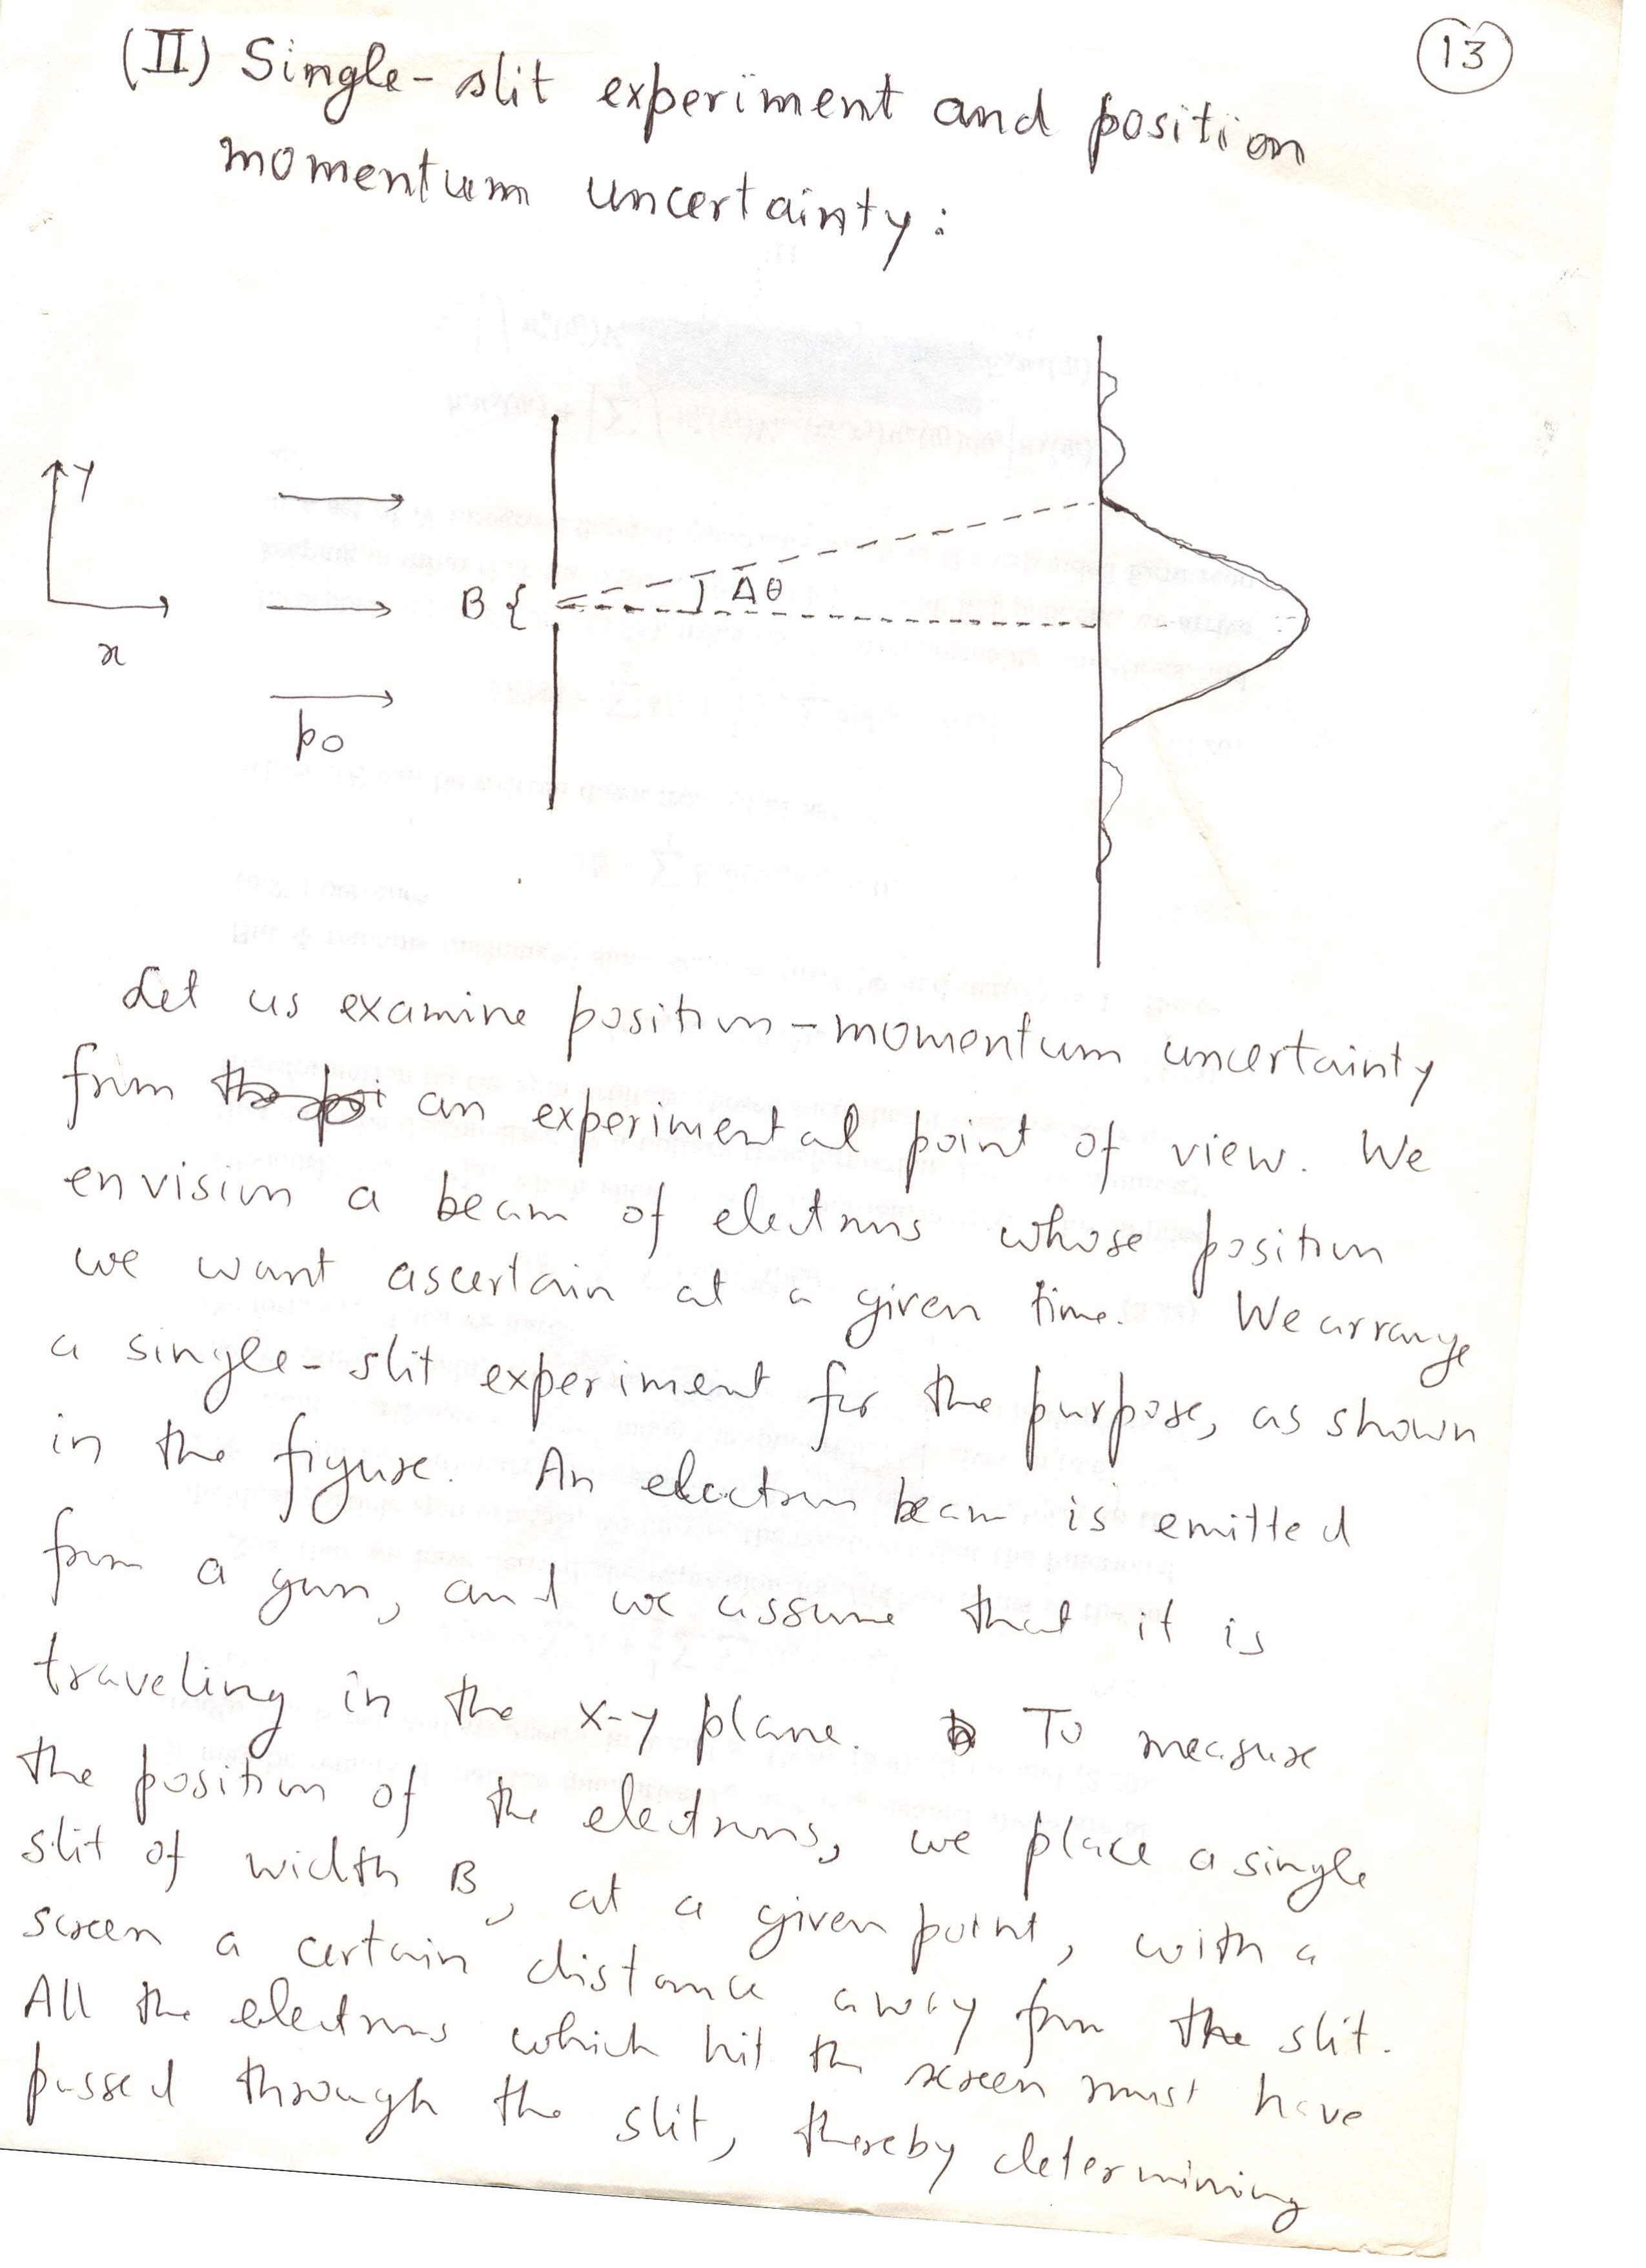 13
(II) Single-slit experiment and position
momentum uncertainty:
y
x
p0
B {
Δθ
Let us examine position-momentum uncertainty
from an experimental point of view. We
envision a beam of electrons whose position
we want ascertain at a given time. We arrange
a single-slit experiment for the purpose, as shown
in the figure. An electron beam is emitted
from a gun, and we assume that it is
traveling in the x-y plane. To measure
the position of the electrons, we place a single
slit of width B, at a given point, with a
screen a certain distance away from the slit.
All the electrons which hit the screen must have
passed through the slit, thereby determining